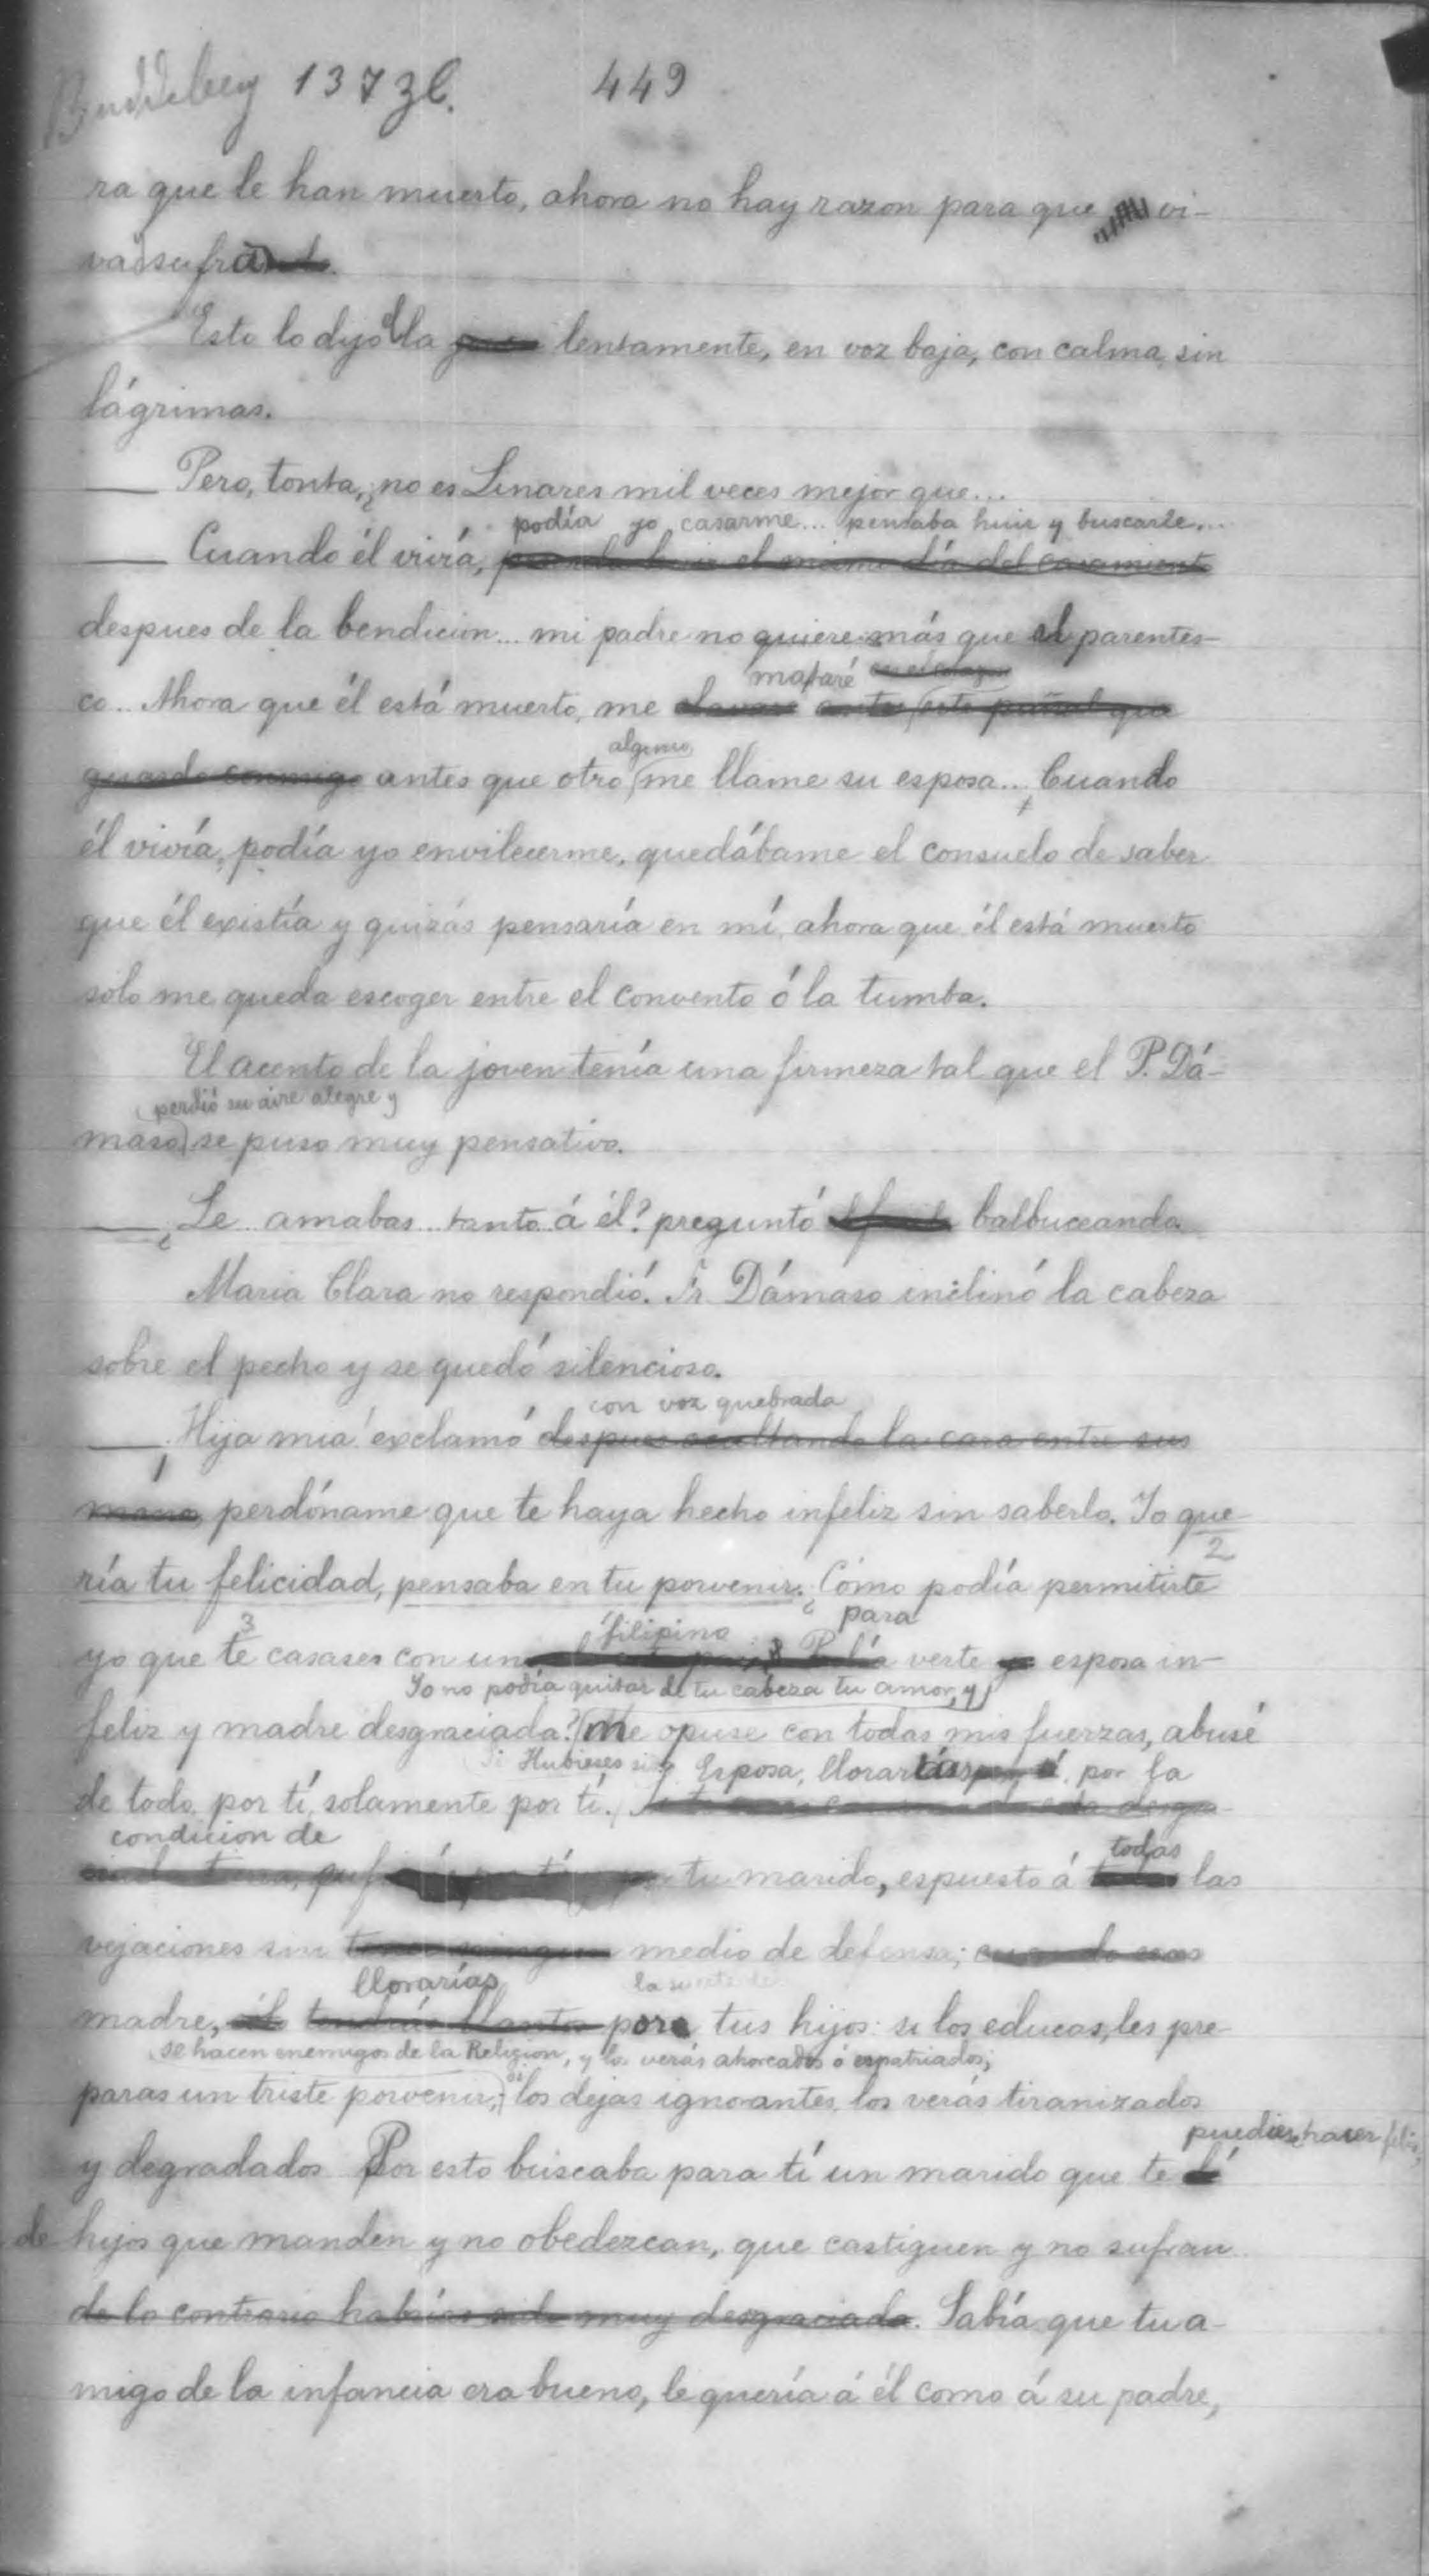 Buddelberg 137 zl. 449
ra que le han muerto, ahora no hay razon para que vi-
va sufra
Esto lo dijo ella lentamente, en voz baja, con calma, sin
lágrimas.
— Pero, tonta, ¿no es Linares mil veces mejor que...
podía yo casarme... pensaba huir y buscarle...
— Cuando él vivía, pensaba huir el mismo día del casamiento
despues de la bendicion... mi padre no quiere más que el parentes-
mataré en el corazon
co... Ahora que él está muerto, me este puñal que
alguno
guardo conmigo antes que otro me llame su esposa... Cuando
él vivía, podía yo envilecerme, quedábame el consuelo de saber
que él existía y quizás pensaría en mí, ahora que él está muerto
solo me queda escoger entre el convento ó la tumba.
El acento de la joven tenía una firmeza tal que el P. Dá-
perdió su aire alegre y
maso se puso muy pensativo.
— ¿Le amabas... tanto á él? preguntó balbuceando.
Maria Clara no respondió. Fr. Dámaso inclinó la cabeza
sobre el pecho y se quedó silencioso.
con voz quebrada
— ¡Hija mía! exclamó despues ocultando la cara entre sus
manos, perdóname que te haya hecho infeliz sin saberlo. Yo que-
2
ría tu felicidad, pensaba en tu porvenir. ¿Cómo podía permitirte
3 filipino para
yo que te casases con un verte esposa in-
Yo no podía quitar de tu cabeza tu amor, y
feliz y madre desgraciada? Me opuse con todas mis fuerzas, abusé
Si Hubieses sido Esposa, llorarías por la
de todo, por tí, solamente por tí.
condicion de todas
tu marido, espuesto á las
vejaciones sin medio de defensa; cuando seas
llorarías la suerte de
madre, tendrás llantos para tus hijos: si los educas, les pre-
se hacen enemigos de la Religion, y los verás ahorcados ó expatriados;
paras un triste porvenir; si los dejas ignorantes, los verás tiranizados
puediese hacer feliz,
y degradados. Por esto buscaba para tí un marido que te dé
de hijos que manden y no obedezcan, que castiguen y no sufran
de lo contrario habrías sido muy desgraciada. Sabía que tu a-
migo de la infancia era bueno, le quería á él como á su padre,